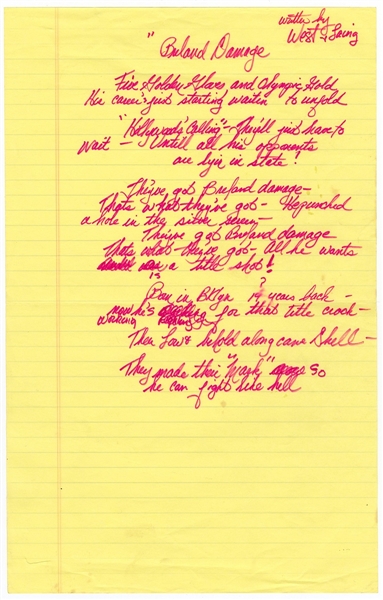 written by
West & Laing
"Breland Damage
Five Golden Gloves and Olympic Gold
His career just starting waitin' to unfold
"Hollywood's Calling" - They'll just have to
wait - Until all his opponents
are lyin in state!
They've got Breland damage -
Thats what they've got - He punched
a hole in the silver screen -
They've got Breland damage
thats what they've got - All he wants
is a title shot!
Born in Bklyn 19? years back -
now he's working for that title crack -
Then Low & behold along came Shell -
They made their "Mark" so
he can fight like hell